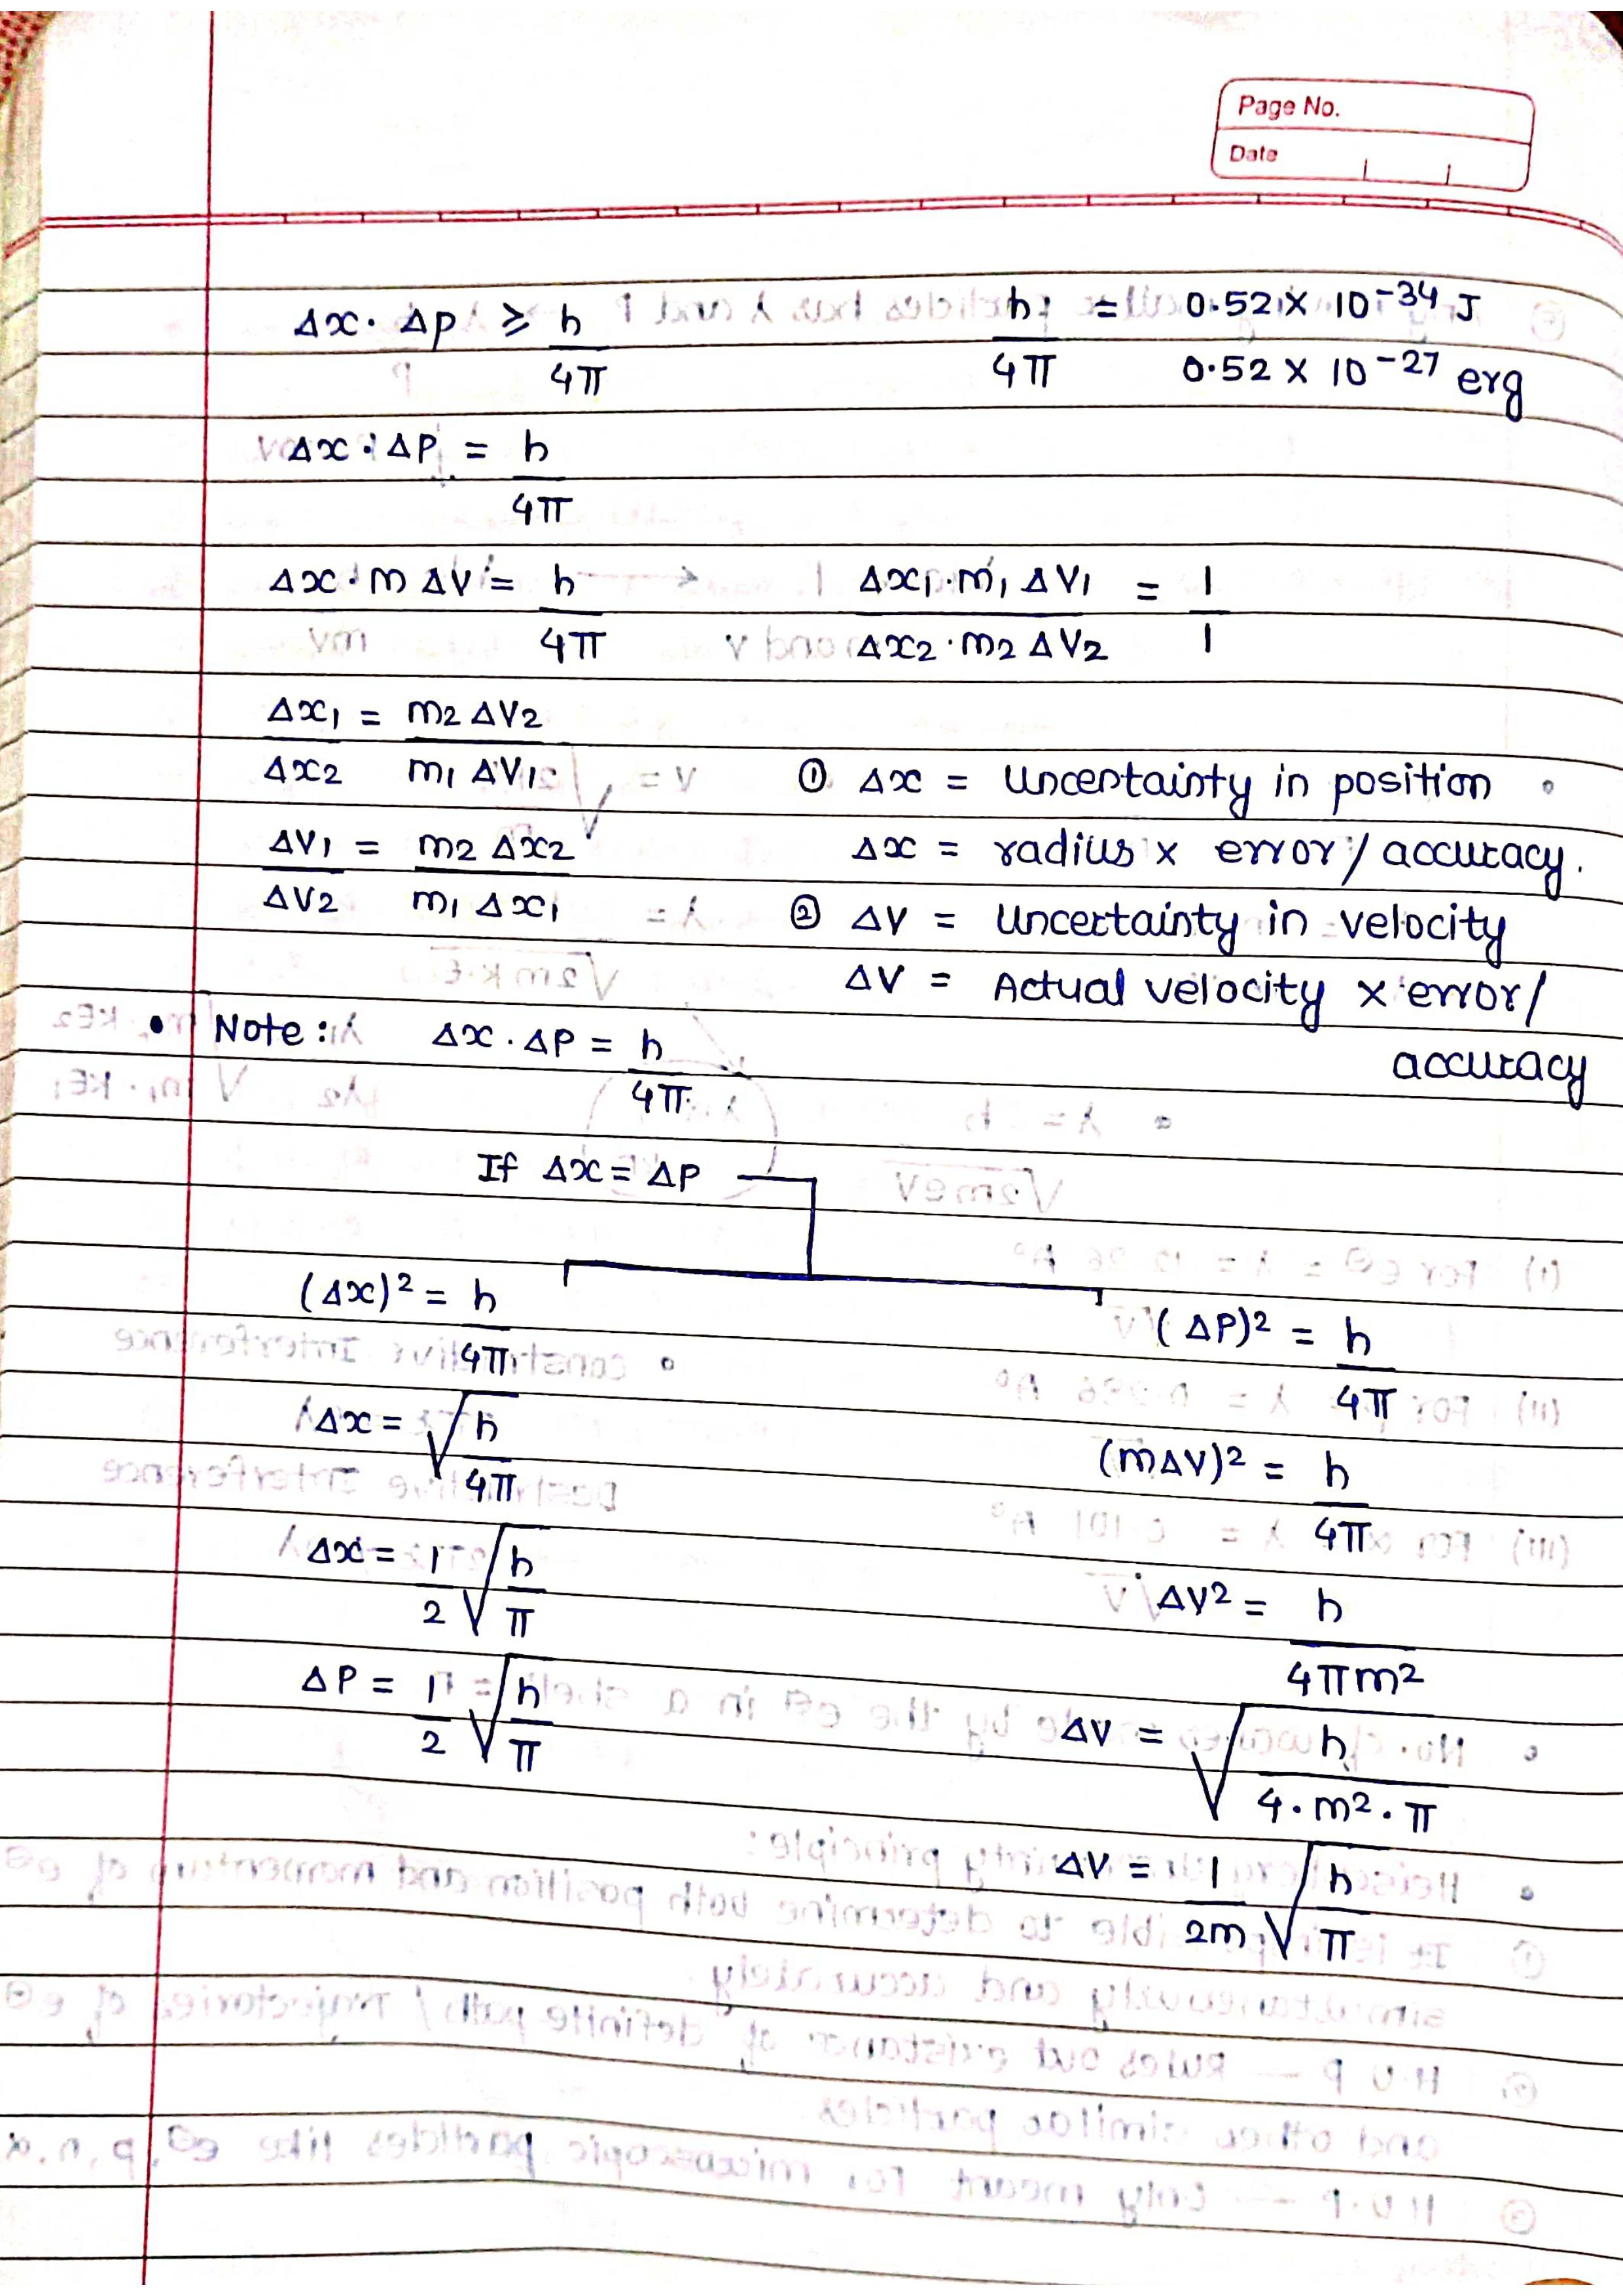 Page No.
Date
Δx · Δp ≥ h/4π
h/4π = 0.52 × 10⁻³⁴ J
0.52 × 10⁻²⁷ erg
Δx · Δp = h/4π
Δx · m Δv = h/4π
Δx₁ · m₁ Δv₁ / Δx₂ · m₂ Δv₂ = 1/1
Δx₁/Δx₂ = m₂ Δv₂ / m₁ Δv₁
① Δx = Uncertainty in position
Δx = radius × error / accuracy.
Δv₁/Δv₂ = m₂ Δx₂ / m₁ Δx₁
② Δv = Uncertainty in velocity
Δv = Actual velocity × error/
accuracy
• Note: Δx · Δp = h/4π
If Δx = Δp
(Δx)² = h/4π
Δx = √(h/4π)
Δx = 1/2 √(h/π)
Δp = 1/2 √(h/π)
(Δp)² = h/4π
(mΔv)² = h/4π
Δv² = h/4πm²
Δv = √(h/4·m²·π)
Δv = 1/2m √(h/π)